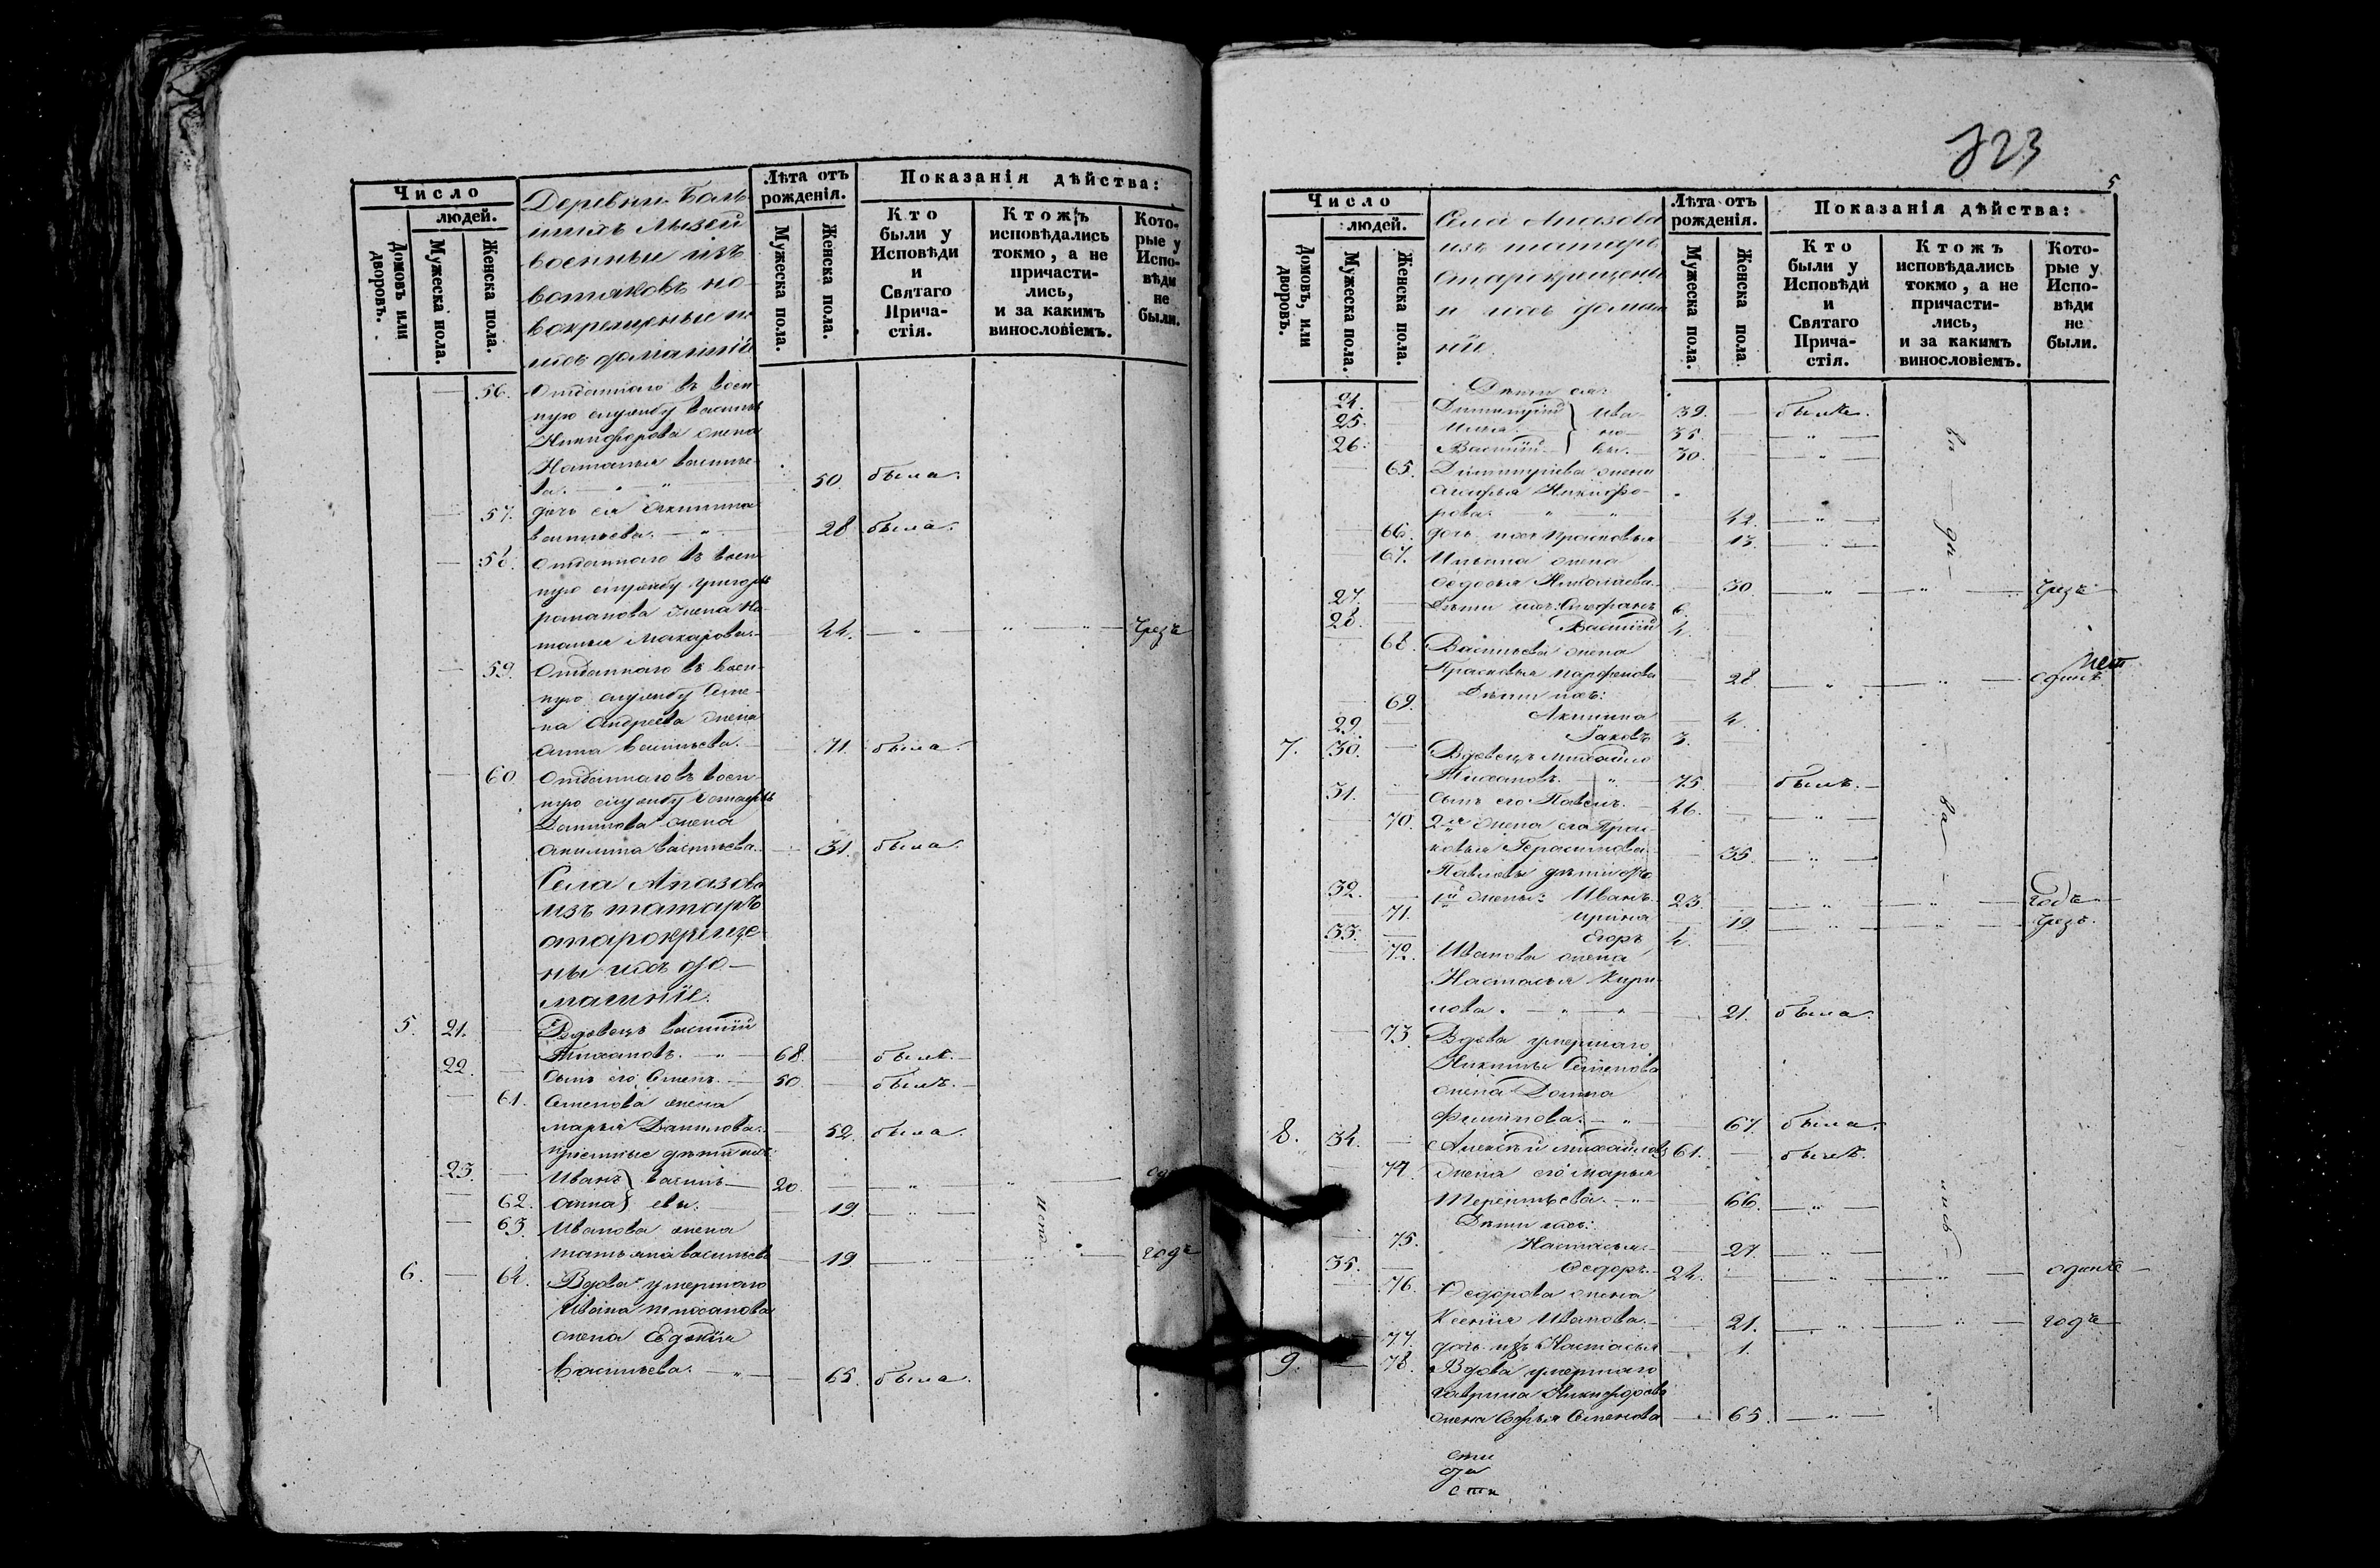 Число
людей.
Домовъ или дворовъ.
Мужеска пола.
Женска пола.
Деревни Боль
шихъ Лызей
военные изъ
вотяковъ но-
вокрещеные и
ихъ домашніи
Лѣта отъ рожденія.
Мужеска пола.
Женска пола.
Показанія дѣйства:
Кто были у Исповѣди и Святаго Прича-стія.
Ктожъ исповѣдались токмо, а не причасти-лись, и за какимъ винословіемъ.
Кото-рые у Испо-вѣди не были.
56. Отданнаго въ воен-
ную службу Василья
Никифорова жена
Наталья Василье-
ва. 50. была.
57. дочь ея Акилина
Васильева. 28 была.
58. Отданнаго въ воен-
ную службу Григорья
Романова жена На-
талья Макарова. 44. чрезъ
59. Отданнаго въ воен-
ную службу Семе-
на Андреева жена
Анна Васильева. 71. была.
60. Отданнаго въ воен-
ную службу
Данилова жена
Акилина Васильева. 31. была.
Села Апазова
изъ татаръ
старокреще-
ны ихъ до-
машніе.
5. 21. Вдовецъ Василій
Тихановъ. 68. былъ.
22. Сынъ его Семенъ. 50. былъ.
61. Семенова жена
Марья Данилова. 52. была.
пріемные дѣти ихъ:
23. Иванъ } Василь- 20.
62. Анна } евы. 19.
63. Иванова жена
Татьяна Васильева 19 годъ
6. 64. Вдова умершаго
Ивана Тиханова
жена Евдокія
Васильева. 65. была.
823
5
Число
людей.
Домовъ, или дворовъ.
Мужеска пола.
Женска пола.
Села Апазова
изъ татаръ
старокрещены
и ихъ домаш
ніи.
Лѣта отъ рожденія.
Мужеска пола.
Женска пола
Показанія дѣйства:
Кто были у Исповѣди и Святаго Прича-стія.
Ктожъ исповѣдались токмо, а не причасти-лись, и за какимъ винословіемъ.
Кото-рые у Испо-вѣди не были.
Дѣти ея:
24. Димитрій } Ива- 39. былъ.
25. Илья } но- 35.
26. Василій } вы. 30.
65. Димитріева жена
Агафья Никифо-
рова. 42.
66. дочь ихъ Прасковья 13.
67. Ильина жена
Ѳедосья Николаева. 30. чрезъ
27. Дѣти ихъ: Стефанъ 6.
28. Василій 4.
68. Васильева жена
Прасковья Парфенова 28. одинъ
69. Дѣти ихъ:
Акилина 4.
29. Іаковъ 3.
7. 30. Вдовецъ Михайло
Тихановъ. 75. былъ.
31. Сынъ его Павелъ. 46.
70. 2я жена его Прас-
ковья Герасимова. 35.
Павловы дѣти
32. 1й жены: Иванъ. 23. годъ
71. Ирина 19. чрезъ.
33. Егоръ 4.
72. Иванова жена
Настасья Кири-
лова. 21. была.
73. Вдова умершаго
Никиты Семенова
жена Домна
Филипова. 67. была.
8. 34. Алексѣй Михайловъ 61. былъ.
74. Жена его Марья
Терентьева. 66.
Дѣти ихъ:
75. Настасья. 27.
35. Ѳедоръ. 24. одинъ
76. Ѳедорова жена
Ксенія Иванова. 21. годъ
77. дочь ихъ Настасья 1.
9. 78. Вдова умершаго
Гаврила Никифорова
жена Софья Семенова 65.